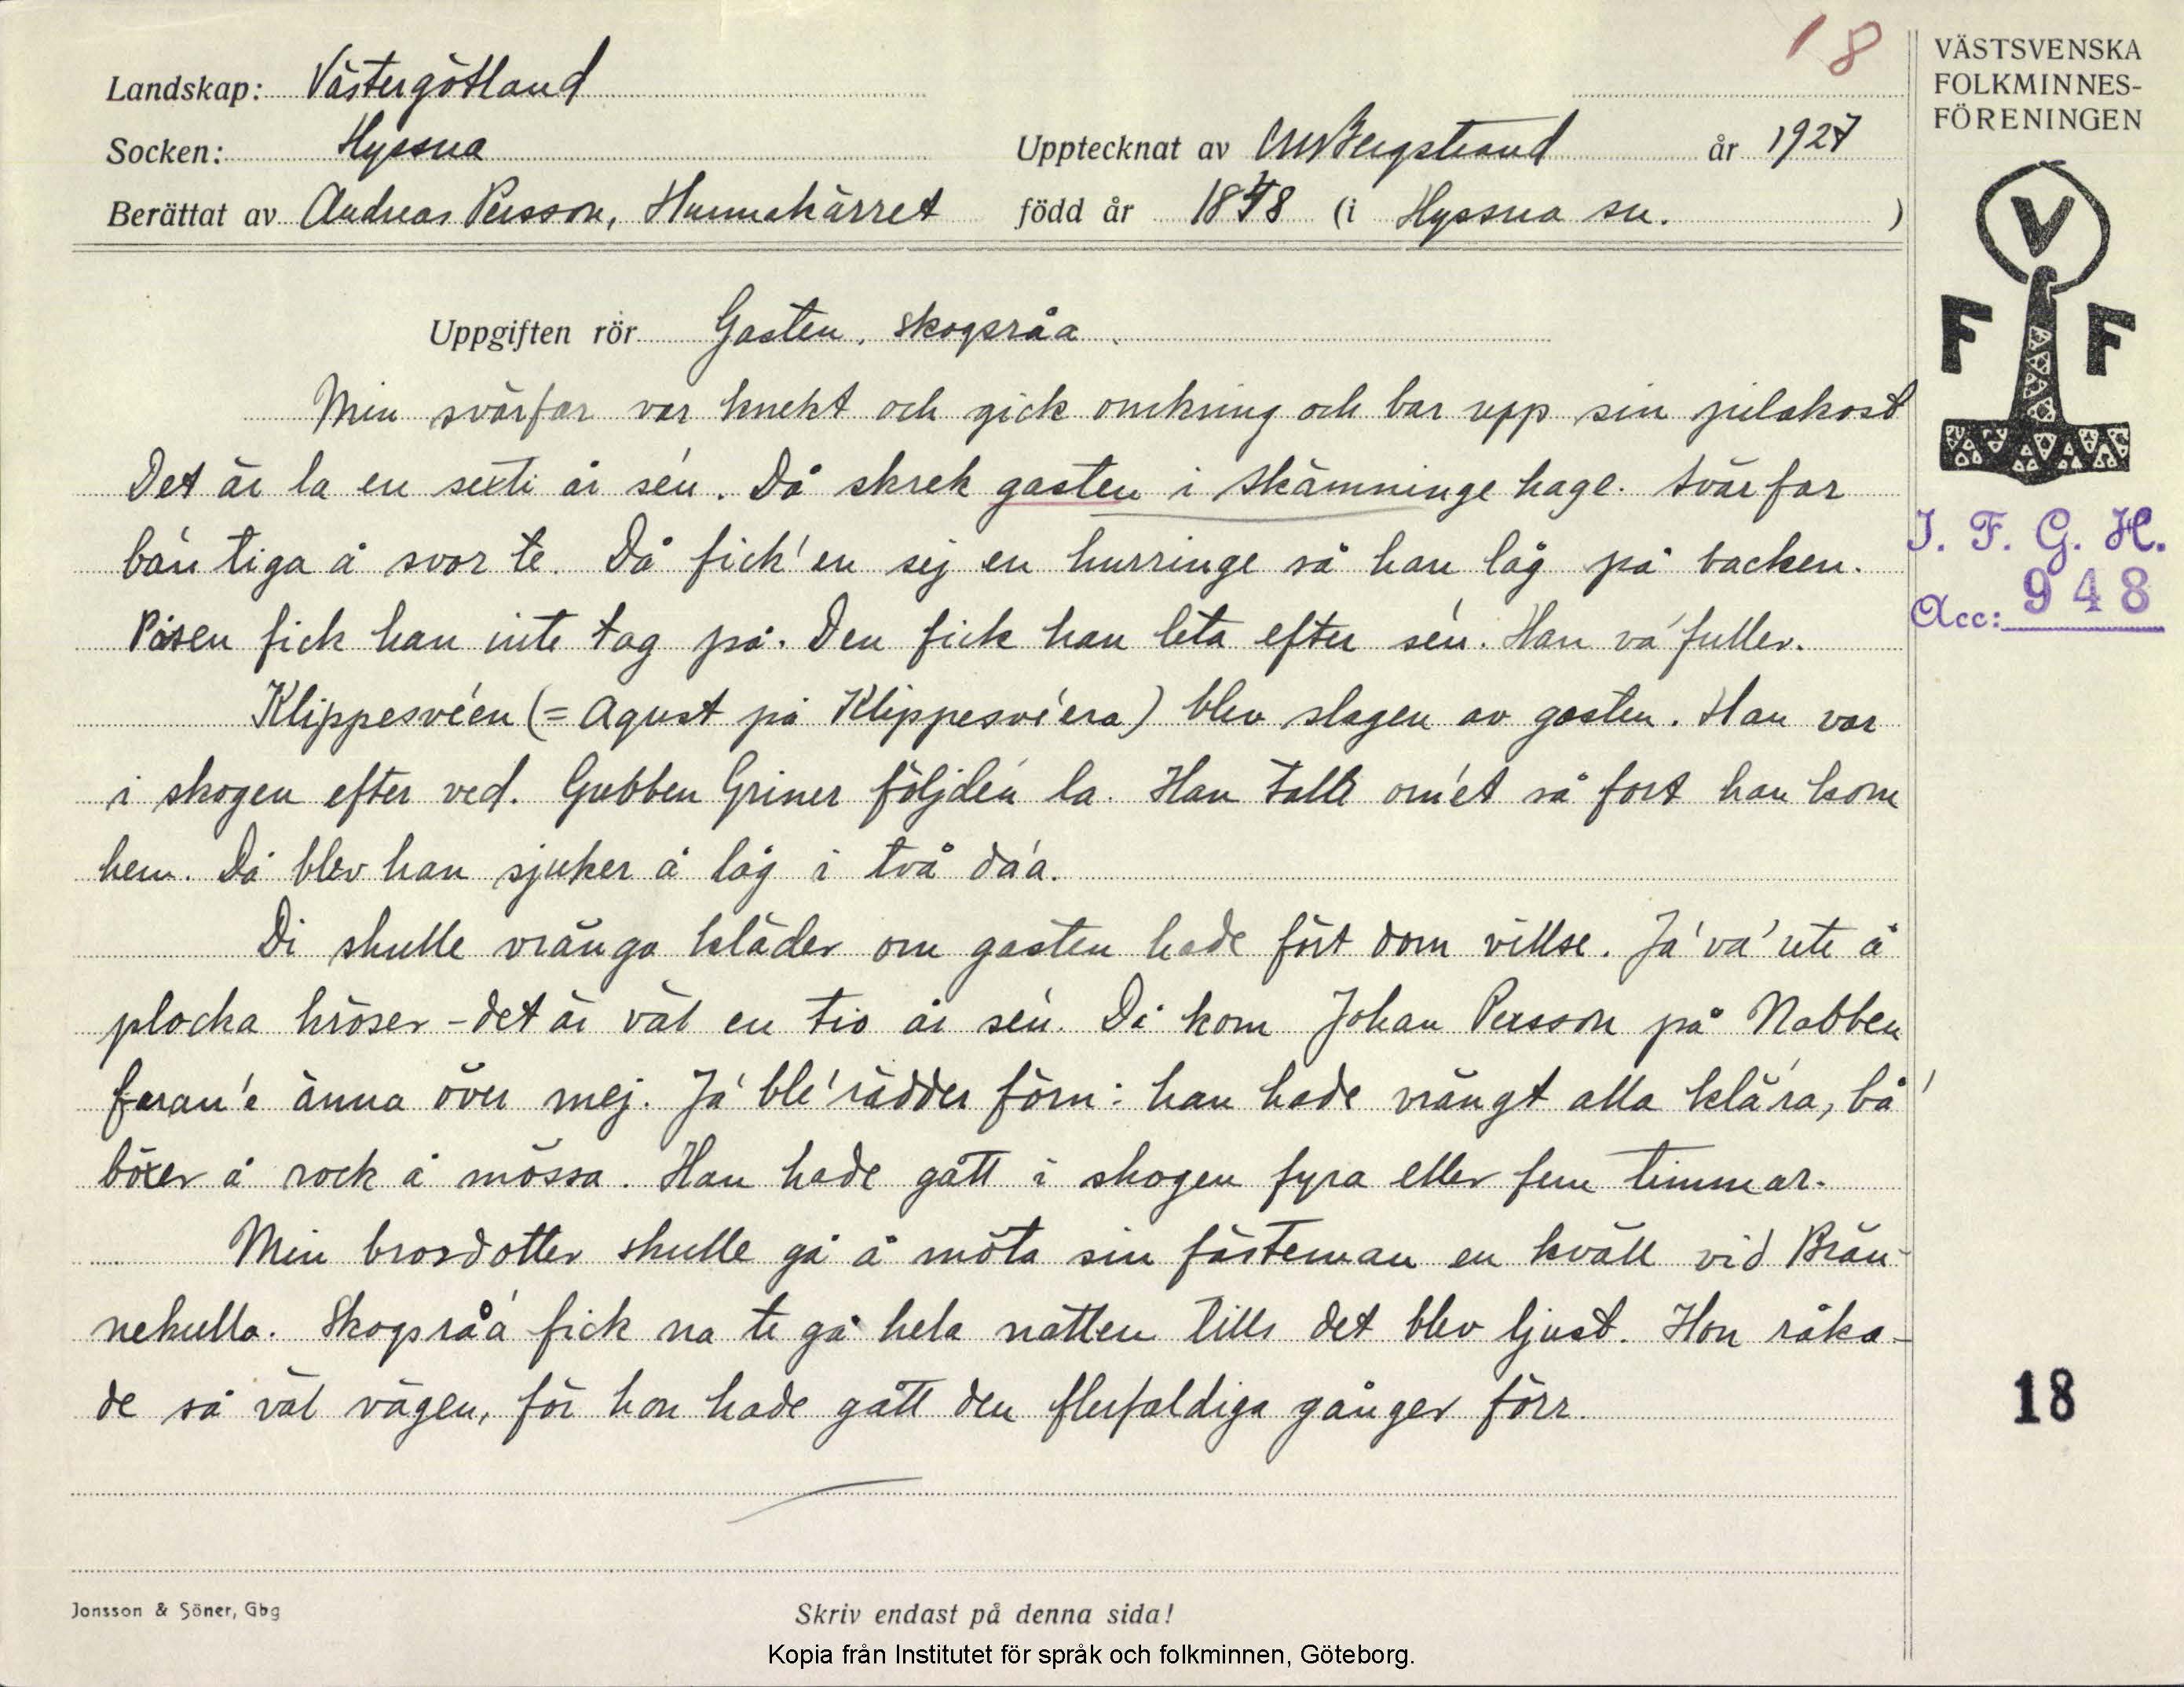 18
Landskap: Västergötland
Socken: Hyssna
Upptecknat av CM Bergstrand år 1927
Berättat av Andreas Persson, Hunnakärret född år 1848 (i Hyssna sn. )
VÄSTSVENSKA
FOLKMINNES-
FÖRENINGEN
V
F F
I. F. G. H.
Acc: 948
Uppgiften rör Gasten, skogsråa.
Min svärfar var knekt och gick omkring och bar upp sin julakost
Det är la en sexti år sén. Då skrek gasten i Skämninge hage. Svärfar
bán tiga å svor te. Då fick'en sej en hurringe så han låg på backen.
Påsen fick han inte tag på. Den fick han leta efter sén. Han va' fuller.
Klippesvéen (= Agust på Klippesvéera) blev slagen av gasten. Han var
i skogen efter ved. Gubben Griner följdén la. Han talte om'et så fort han kom
hem. Då blev han sjuker å låg i två da'a.
Di skulle vränga kläder om gasten hade fört dom villse. Ja' va' ute å
plocka kröser - det är väl en tio år sén. Då kom Johan Persson på Nabben
faran'e änna över mej. Ja' ble' rädder förn: han hade vrängt alla klä'ra, bå'
böxer å rock å mössa. Han hade gått i skogen fyra eller fem timmar.
Min brorsdotter skulle gå å möta sin fästeman en kväll vid Brän-
nekulla. Skogsrå'a fick na te gå hela natten tills det blev ljust. Hon råka-
de så väl vägen, för hon hade gått den flerfaldiga gånger förr.
18
Jonsson & Söner, Gbg
Skriv endast på denna sida!
Kopia från Institutet för språk och folkminnen, Göteborg.